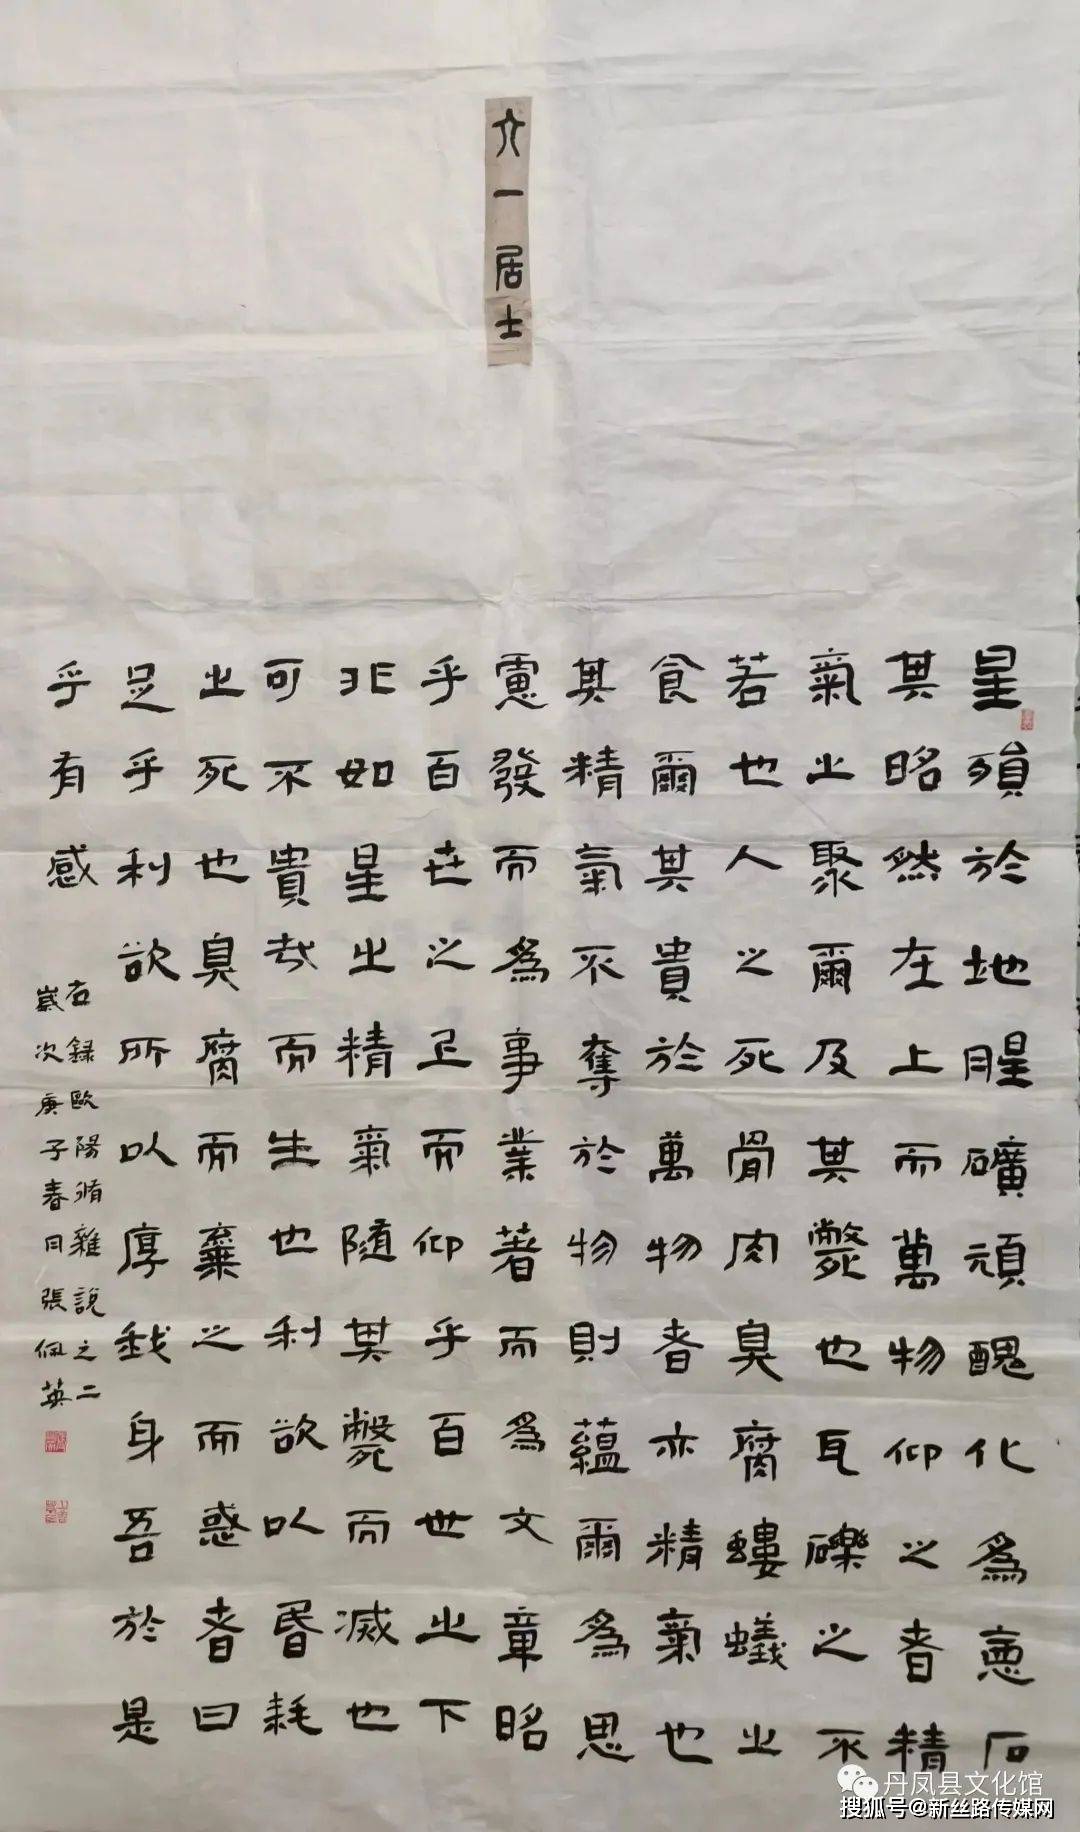 六一居士
星殞於地腥礦頑醜化為惡石
其昭然在上而萬物仰之者精
氣之聚爾及其斃也瓦礫之不
若也人之死骨肉臭腐螻蟻之
食爾其貴於萬物者亦精氣也
其精氣不奪於物則蘊爾為思
慮發而為事業著而為文章昭
乎百世之上而仰乎百世之下
非如星之精氣隨其斃而滅也
可不貴哉而生也利欲以昏耗
之死也臭腐而棄之而惑者曰
足乎利欲所以厚我身吾於是
乎有感
右錄歐陽脩雜說之二
歲次庚子春月張佩英
丹凤县文化馆
搜狐号@新丝路传媒网